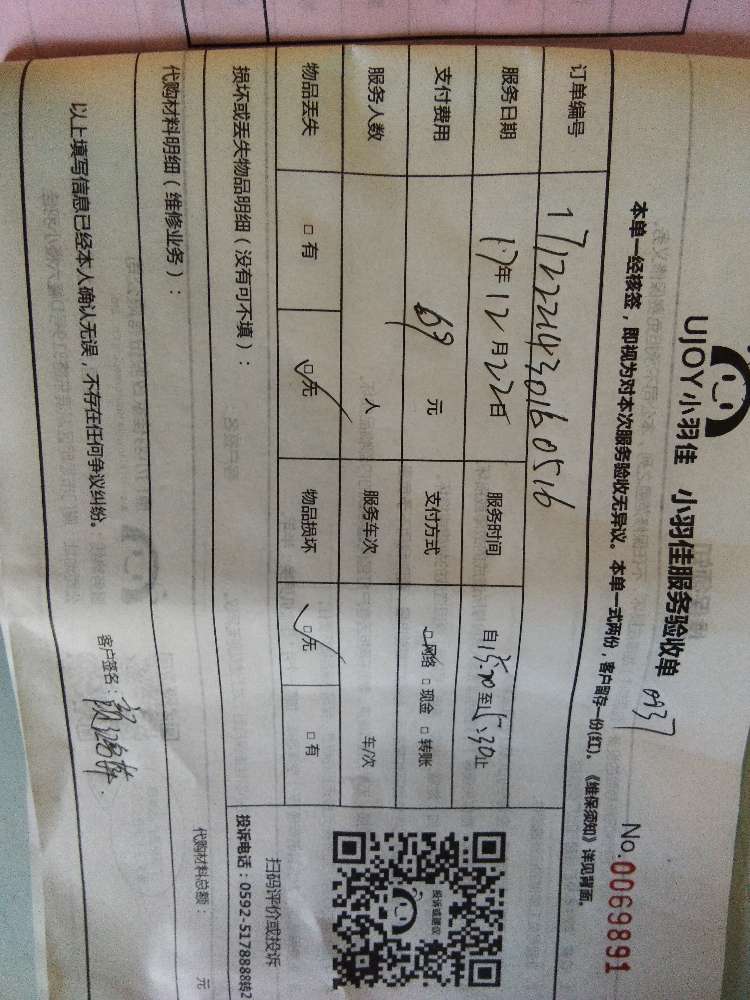 UJOY小羽佳 小羽佳服务验收单 0937
No.0069891
本单一经核签，即视为对本次服务验收无异议。本单一式两份，客户留存一份(红)。《维保须知》详见背面。
订单编号 171222143016 0516
服务日期 17年12月22日 服务时间 自15:00至15:30止
支付费用 69 元 支付方式 □网络 □现金 □转账
服务人数 人 服务车次 车/次
物品丢失 □有 □无 物品损坏 □无 □有
损坏或丢失物品明细（没有可不填）：
代购材料明细（维修业务）：
代购材料总额： 元
投诉或建议
扫码评价或投诉
投诉电话：0592-5178888转2
以上填写信息已经本人确认无误，不存在任何争议纠纷。
客户签名：